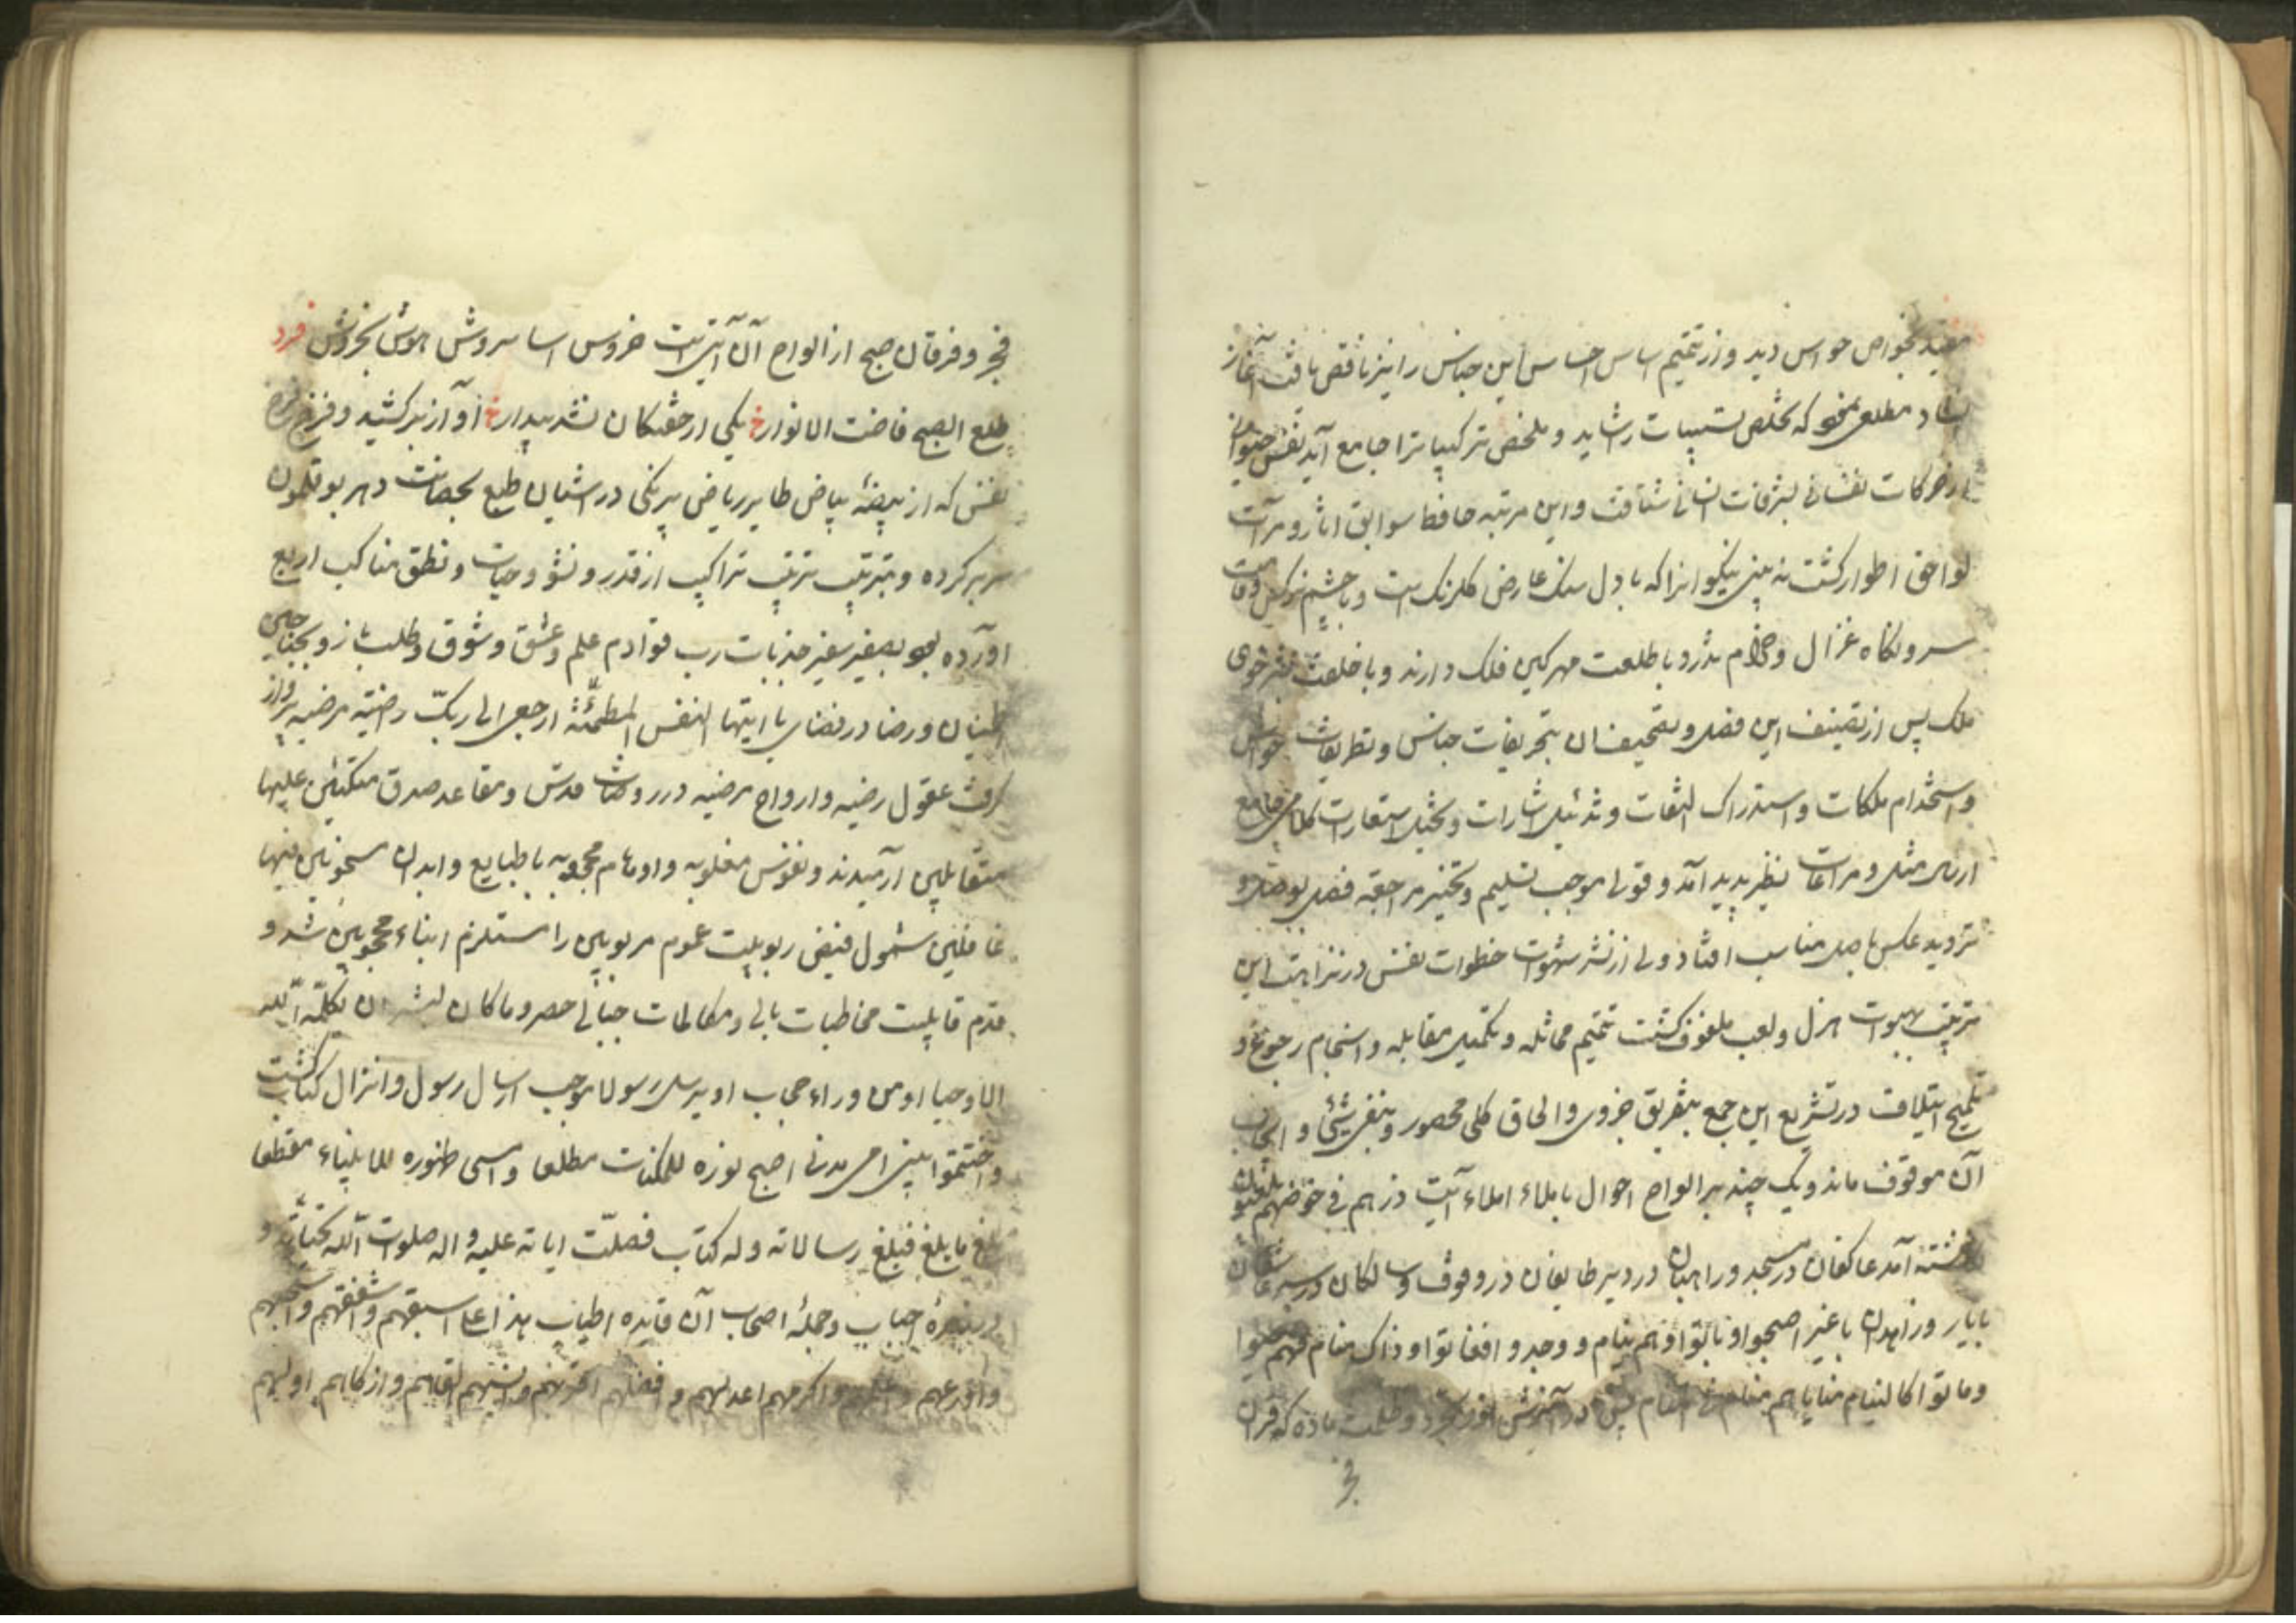 مقید بخواص حواس دید و از تتمیم اساس احساس این جناس را نیز ناقص یافت آغاز
نهاد مطلعی نمود که مخلص تشبیبات را شاید و ملخص ترکیبات را جامع آید نفس
از حرکات نفسانی بشرفات انسانی شتافت و این مرتبه حافظ سوابق آثار و مرآت
لواحق اطوار کشت نه بینی نیکوانرا که با دل سنک عارض کلرنک است و با چشم نرکس
سرو نکاه غزال و خرام تذرو با طلعت مهر کین فلک دارند و با خلعت خوی
ملک پس از تصنیف این فصل و تصحیف آن بتحریفات جناس و تطریفات خواص
و استخدام ملکات و استدراک التفات و تذئیل اشارات و تخئیل استعارات جامع
ارسال مثل و مراعات نظیر پدید آمد و قول موجب تسلیم و تخییر مراجعه فصل بوصل و
تردید عکس باصل مناسب افتاد ولی از نشر شهوات خطوات نفس در نزاهت این
ترتیب بهبوات هزل و لعب ملفوف کشت تتمیم مماثله و تکمیل مقابله و انسجام رجوع و
تلمیح ایتلاف در تشریع این جمع بتفریق جزوی و الحاق کلی محصور و بنفی شیئی و ایجاب
آن موقوف ماند و یک چند بر الواح احوال باملاء املاء آیت ذرهم فی خوضهم یلعبون
نوشته آمد عاکفان در مسجد و راهبان در دیر طایفان در وقوف و سالکان در سیر عاشقان
با یار و زاهدان با غیر اصبحوا و باتوا و هم نیام و وجدوا و افغاتوا و ذاک منام فهم
و ماتوا کالنیام منایاهم منام فی در آفرینش نور و ظلمت ماده که قرآن
فجر
فجر و فرقان صبح از الواح آن آیتی است خروس اسا سروش هوش بخروش فرد
طلع الصبح فاضت الانوار خ یکی از خفتکان نشد بیدار خ آواز برکشید و فرخ فرخ
نفس که از بیضهٔ بیاض طایر ریاض بیرنکی در اشیان طبع بحضانت دهر بوقلمون
سر بر کرده و بترتیب ترتیب تراکیب از قدر و نشو و حیات و نطق مناکب اربع
اورده بود بصفیر سفیر جذبات رب قوادم علم و عشق و شوق و طلب باز و بجناحین
اطمینان و رضا در فضای یا ایتها النفس المطمئنّة ارجعی الی ربک راضیة مرضیه پرواز
کرفت عقول رضیه و ارواح مرضیه در روضات قدس و مقاعد صدق متکئین علیها
متقابلین آرمیدند و نفوس مغلوبه و اوهام محجوبه با طبایع و ابدان مسجونین فیها
غافلین شمول فیض ربوبیت عموم مربوبین را مستلزم انباء محجوبین شد و
عدم قابلیت مخاطبات بالی و مکالمات جنانی حصر و ما کان لبشر ان یکلّمه اللّه
الا وحیا او من وراء حجاب او یرسل رسولا موجب ارسال رسول و انزال کتاب کشت
و اختتموا بنبی امی مدنی اصبح نوره للمکنات مطلعا و امسی ظهوره للانبیاء مقطعا
بلغ ما بلغ فبلغ رسالاته و له کتاب فصلّت ایاته علیه و اله صلوات اللّه تحیاته و
در زمرهٔ احباب و جملهٔ اصحاب آن قایده اطیاب هذا علی اسبقهم و اشفقهم و اسمحهم
و اورعهم و اکرمهم اعدلهم و افضلهم اتقاهم و ازکاهم اولیهم